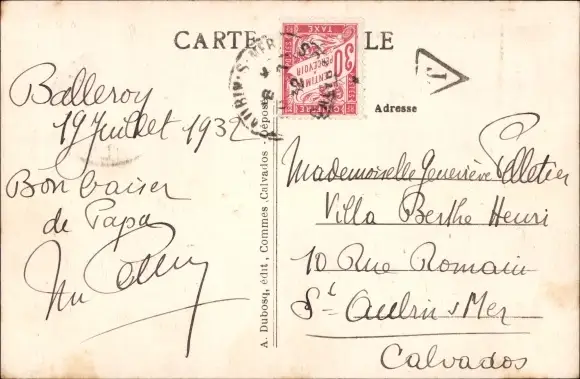 CARTE
LE
Adresse
TAXE
30
CENTIMES
PERCEVOIR
T
Balleroy
19 Juillet 1932
Bon baiser
de Papa
A. Dubosq, édit, Commes, Calvados - Déposé
Mademoiselle Geneviève Pelletier
Villa Berthe Henri
10 Rue Romain
St Aubin s Mer
Calvados